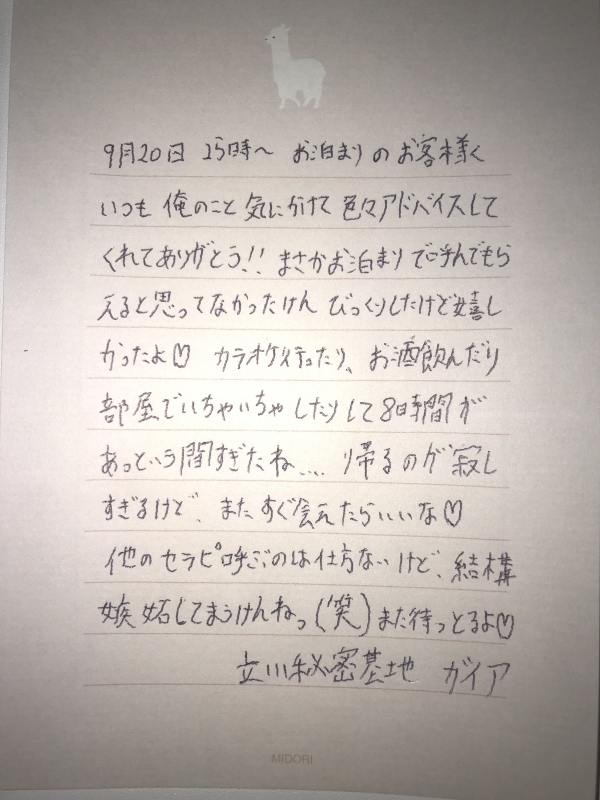 9月20日 25時〜 お泊まりのお客様く
いつも 俺のこと 気にかけて 色々アドバイスして
くれてありがとう!! まさかお泊まりで呼んでもら
えると思ってなかったけん びっくりしたけど嬉し
かったよ♡ カラオケ行ったり、お酒飲んだり
部屋でいちゃいちゃしたりして8時間が
あっという間すぎたね... 帰るのが寂し
すぎるけど、またすぐ会えたらいいな♡
他のセラピ呼ぶのは仕方ないけど、結構
嫉妬してまうけんねっ(笑)また待っとるよ♡
立川秘密基地 ガイア
MIDORI